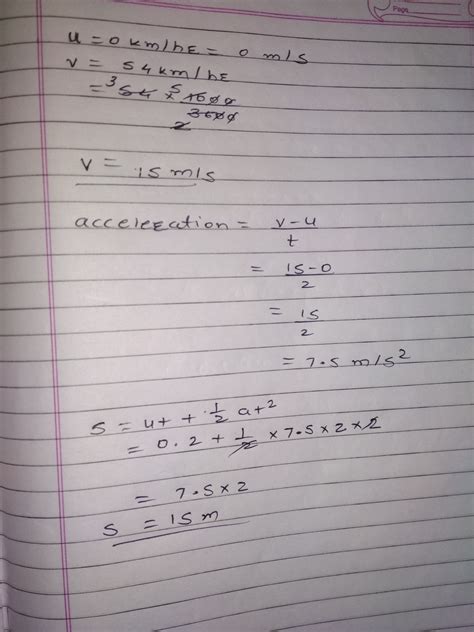 Page
u = 0 km/hr = 0 m/s
v = 54 km/hr
= ³54 × ⁵1000
3600
2
v = 15 m/s
acceleration = v-u
t
= 15-0
2
= 15
2
= 7.5 m/s²
s = ut + 1/2 at²
= 0.2 + 1/2 × 7.5 × 2 × 2
= 7.5 × 2
s = 15 m